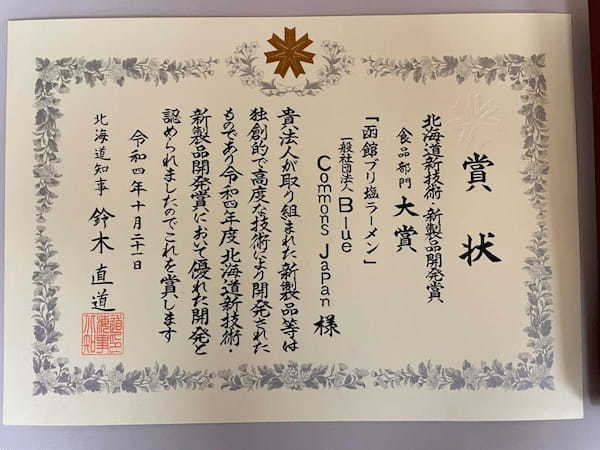 賞状
北海道新技術・新製品開発賞
食品部門 大賞
「函館ブリ塩ラーメン」
一般社団法人 Blue
Commons Japan 様
貴法人が取り組まれた新製品等は
独創的で高度な技術により開発された
ものであり令和四年度北海道新技術・
新製品開発賞において優れた開発と
認められましたのでこれを賞します
令和四年十月二十一日
北海道知事 鈴木直道